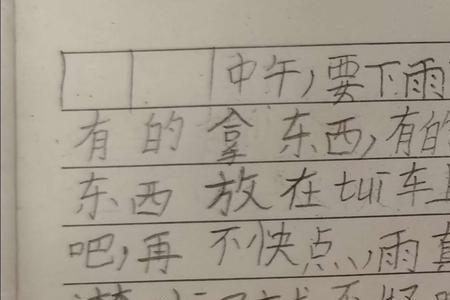 中午,要下雨
有的拿东西,有的
东西放在tuī车上
吧,再不快点,雨真